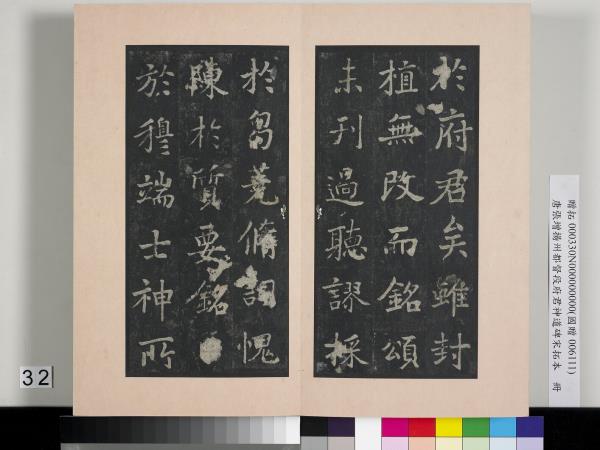 於府君矣雖封
植無改而銘頌
未刊過聽謬採
於芻蕘脩詞愧
陳於質要銘曰
於穆端士神所
贈拓 000330N000000000(國贈 006111)
唐張增揚州都督段府君神道碑宋拓本 冊
32